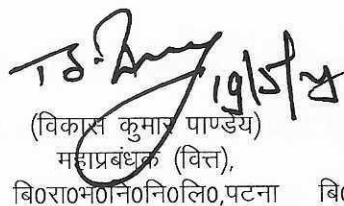 19/5/
(विकास कुमार पाण्डेय)
महाप्रबंधक (वित्त),
बि0रा0भ0नि0नि0लि0,पटना बि0